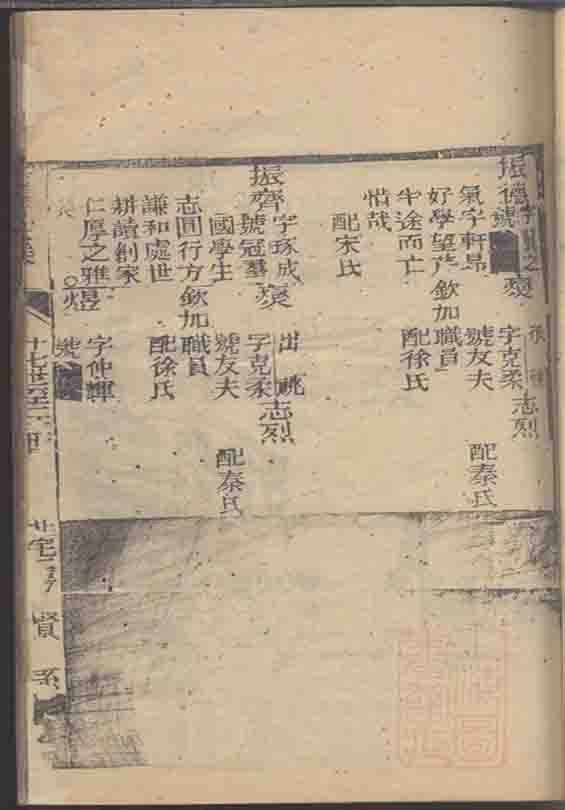 振德
號
氣字軒昂
好學望芹
中途而亡
惜哉
燠
字克柔
號友夫
欽加職員
配徐氏
志烈
配秦氏
配宋氏
振齊
字琢成
號冠羣
國學生
志圓行方
謙和處世
耕讀創家
仁厚之雅
燠
出祧
字克柔
號友夫
欽加職員
配徐氏
志烈
配秦氏
煜
字仲輝
號
賢系